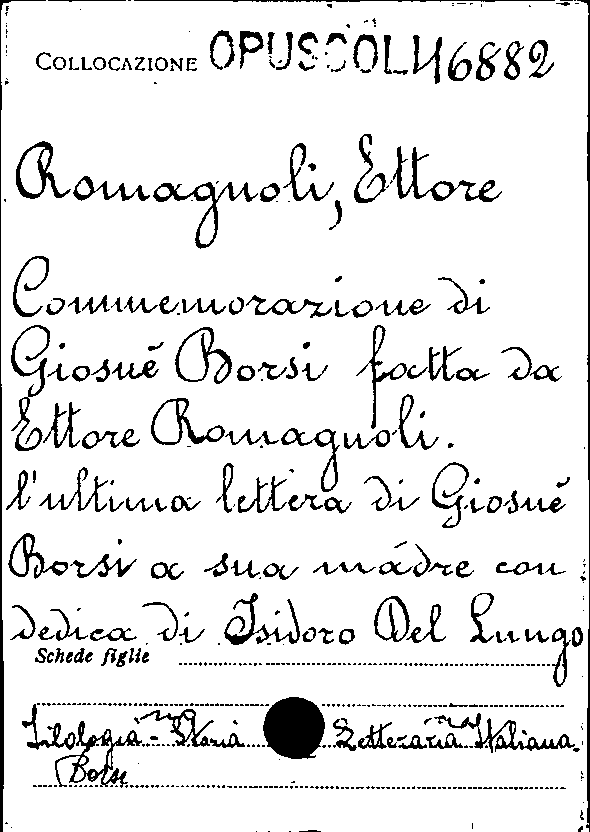 COLLOCAZIONE OPUSCOLI 16882
Romagnoli, Ettore
Commemorazione di
Giosué Borsi fatta da
Ettore Romagnoli.
l'ultima lettera di Giosué
Borsi a sua mádre con
dedica di Isidoro Del Lungo
Schede figlie
Filologia - Storia Letteraria Italiana.
Borsi